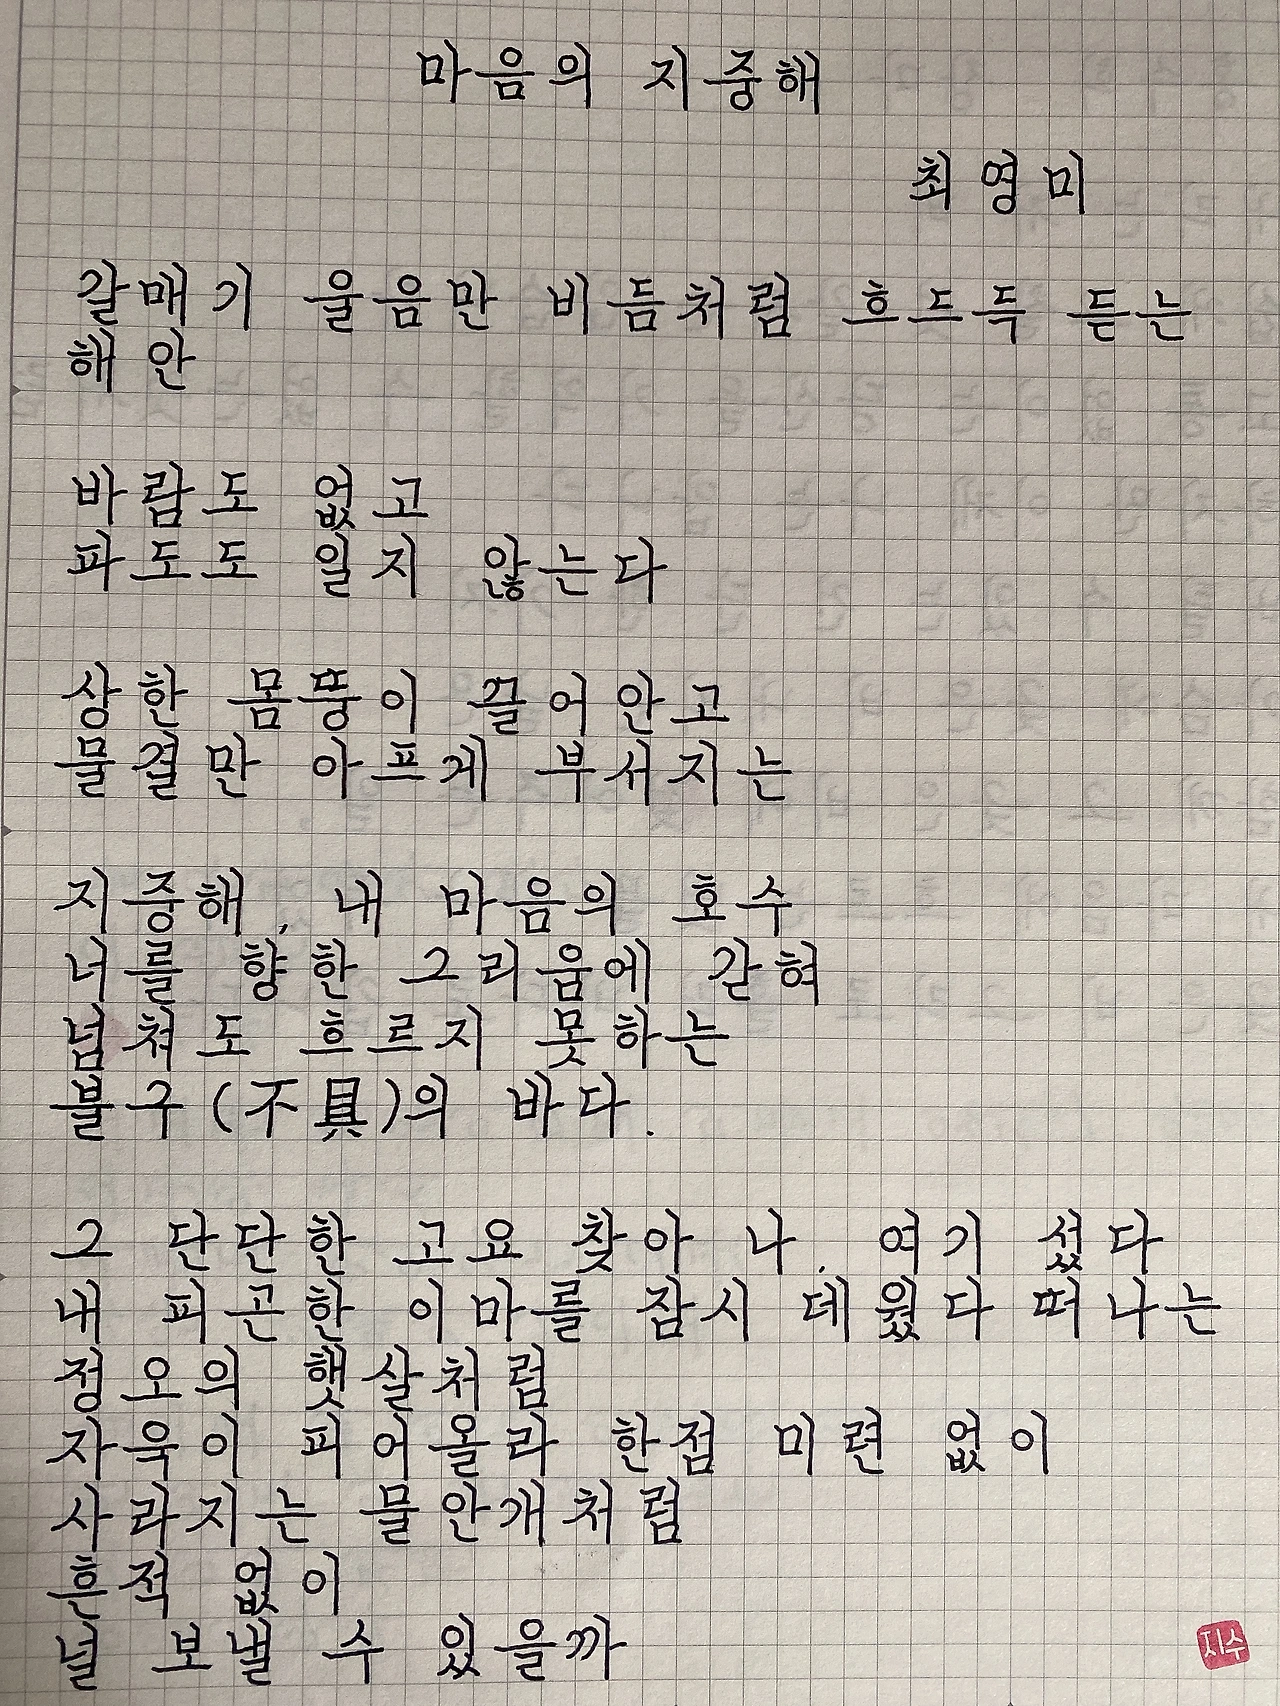 마음의 지중해
최영미
갈매기 울음만 비듬처럼 흐드득 듣는
해안
바람도 없고
파도도 일지 않는다
상한 몸뚱이 끌어안고
물결만 아프게 부서지는
지중해, 내 마음의 호수
너를 향한 그리움에 갇혀
넘쳐도 흐르지 못하는
불구(不具)의 바다.
그 단단한 고요 찾아 나, 여기 섰다
내 피곤한 이마를 잠시 데웠다 떠나는
정오의 햇살처럼
자욱이 피어올라 한점 미련 없이
사라지는 물안개처럼
흔적 없이
널 보낼 수 있을까
지수